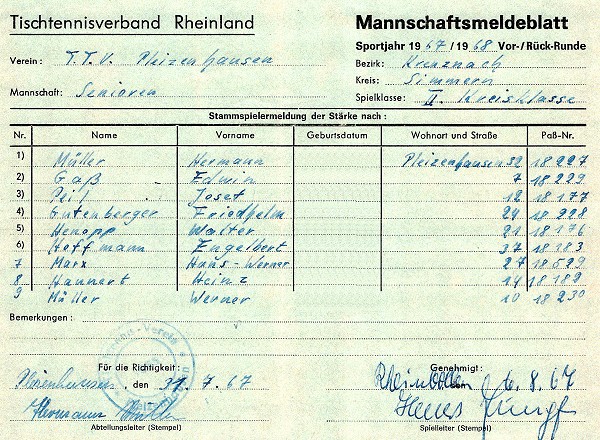 Tischtennisverband Rheinland
Mannschaftsmeldeblatt
Sportjahr 1967/1968 Vor-/Rück-Runde
Verein: T.T.V. Pleizenhausen
Bezirk: Kreuznach
Kreis: Simmern
Mannschaft: Senioren
Spielklasse: II. Kreisklasse
Stammspielermeldung der Stärke nach:
Nr. Name Vorname Geburtsdatum Wohnort und Straße Paß-Nr.
1) Müller Hermann Pleizenhausen 32 18 227
2) Gaß Edwin 7 18 229
3) Peil Josef 12 18 177
4) Gutenberger Friedhelm 24 18 228
5) Henopp Walter 21 18 176
6) Hoffmann Engelbert 37 18 183
7 Marx Hans-Werner 27 18 529
8. Hannert Heinz 14 18 189
9 Müller Werner 10 18 230
Bemerkungen:
Für die Richtigkeit:
Genehmigt:
Pleizenhausen, den 31.7.67
Rheinböllen 6.8.67
Hermann Müller
Abteilungsleiter (Stempel)
Spielleiter (Stempel)